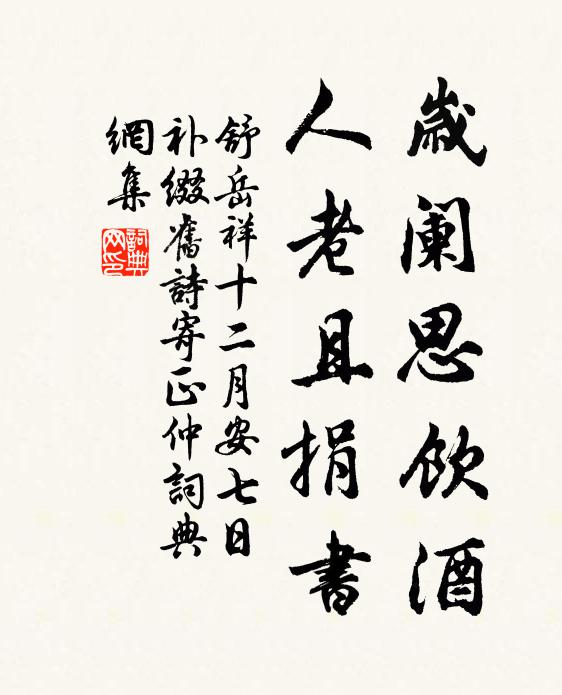 歲阑思饮酒
人老且捐書
舒岳祥十二月安七日
补缀舊詩寄正仲詞典
網集
詞典
网印